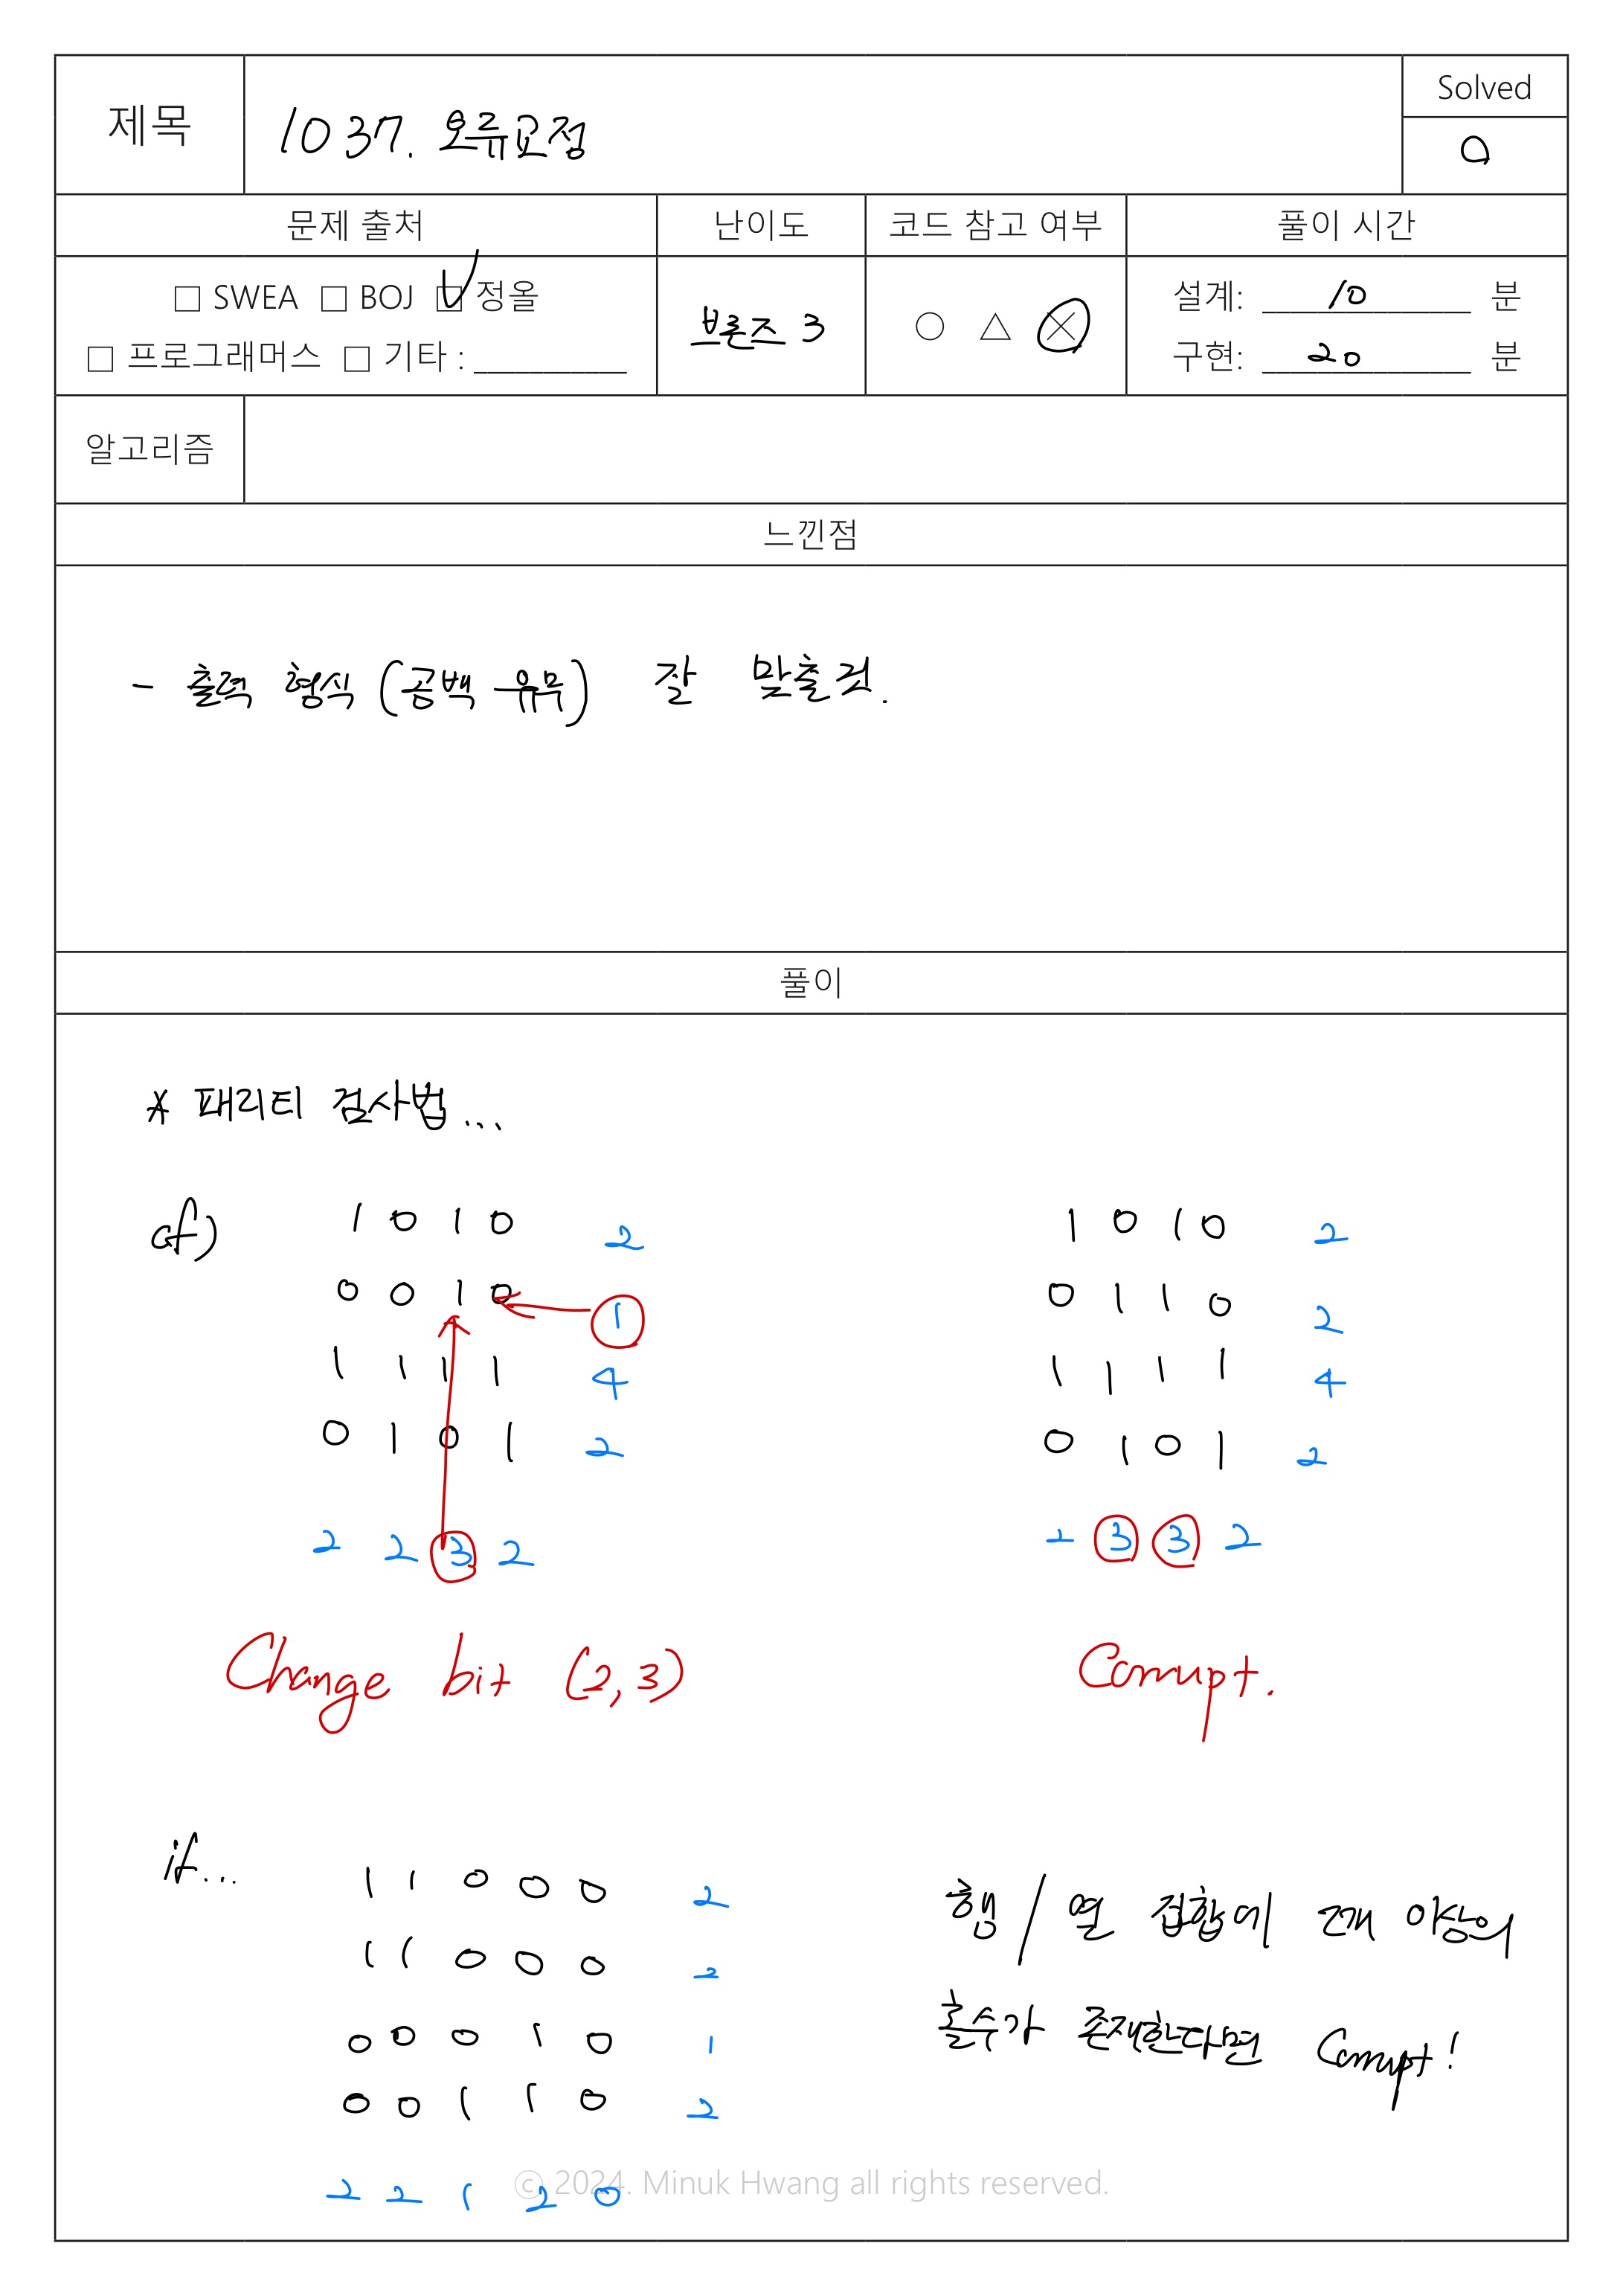 제목
1037. 오류교정
Solved
O
문제 출처
난이도
코드 참고 여부
풀이 시간
□ SWEA □ BOJ ☑ 정올
□ 프로그래머스 □ 기타 : ___________
브론즈 3
○ △ ⊗
설계: 10 분
구현: 20 분
알고리즘
느낀점
- 출력 형식 (공백 유무) 잘 맞출 것.
풀이
* 패리티 검사법...
cf)
1 0 1 0 2
0 0 1 0 1
1 1 1 1 4
0 1 0 1 2
2 2 3 2
Change bit (2,3)
1 0 1 0 2
0 1 1 0 2
1 1 1 1 4
0 1 0 1 2
2 3 3 2
Corrupt.
if...
1 1 0 0 0 2
1 1 0 0 0 2
0 0 0 1 0 1
0 0 1 1 0 2
2 2 1 2 0
행/열 집합에 2개 이상의
홀수가 존재한다면 Corrupt!
ⓒ 2024. Minuk Hwang all rights reserved.